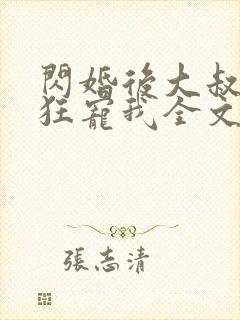 閃婚後大叔
狂寵我全文
張志清